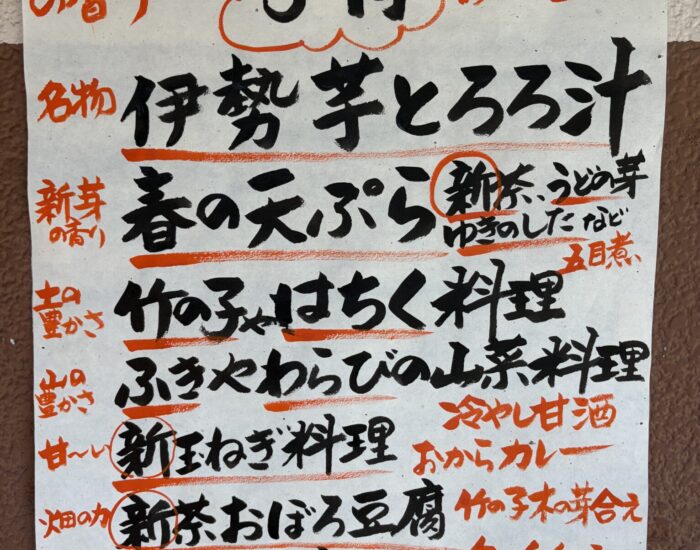 の香り
名物 伊勢芋とろろ汁
新芽の香り 春の天ぷら 新茶、うどの芽
ゆきのした など
五目煮
土の豊かさ 竹の子やはちく料理
山の豊かさ ふきやわらびの山菜料理
冷やし甘酒
甘〜い 新玉ねぎ料理
おからカレー
畑の力 新茶おぼろ豆腐
竹の子木の芽合え